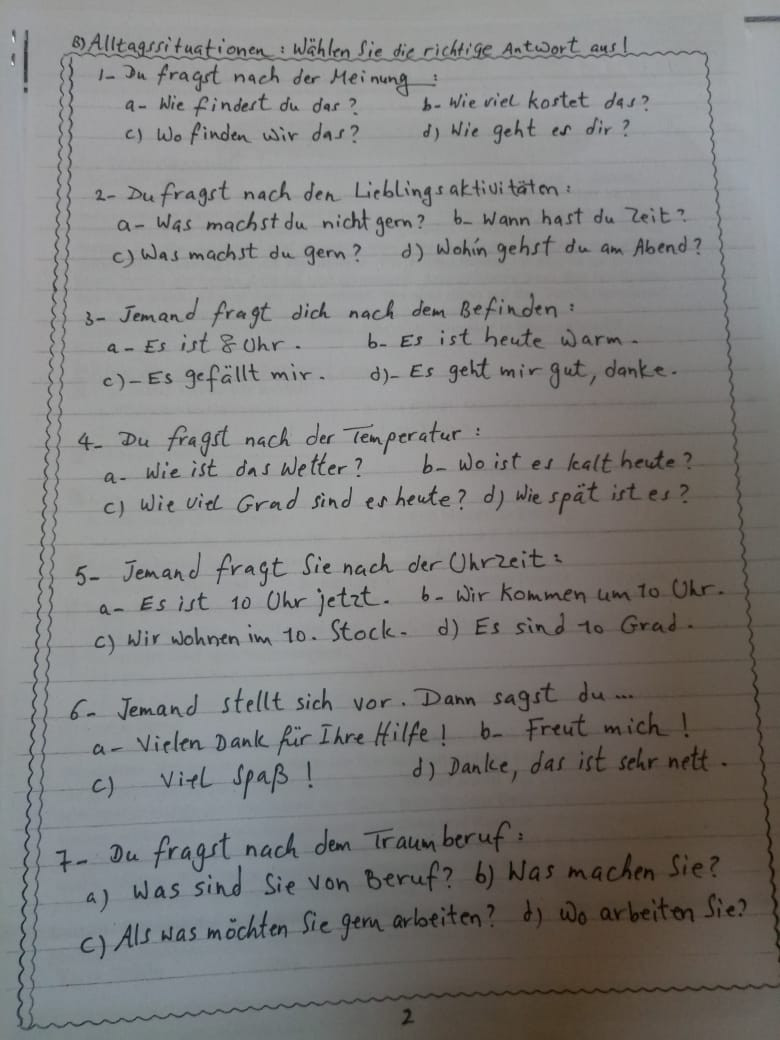 B) Alltagssituationen: Wählen Sie die richtige Antwort aus!
1- Du fragst nach der Meinung:
a- Wie findest du das? b- Wie viel kostet das?
c) Wo finden wir das? d) Wie geht es dir?
2- Du fragst nach den Lieblingsaktivitäten:
a- Was machst du nicht gern? b- Wann hast du Zeit?
c) Was machst du gern? d) Wohin gehst du am Abend?
3- Jemand fragt dich nach dem Befinden:
a- Es ist 8 Uhr. b- Es ist heute warm.
c)- Es gefällt mir. d)- Es geht mir gut, danke.
4- Du fragst nach der Temperatur:
a- Wie ist das Wetter? b- Wo ist es kalt heute?
c) Wie viel Grad sind es heute? d) Wie spät ist es?
5- Jemand fragt Sie nach der Uhrzeit:
a- Es ist 10 Uhr jetzt. b- Wir kommen um 10 Uhr.
c) Wir wohnen im 10. Stock. d) Es sind 10 Grad.
6- Jemand stellt sich vor. Dann sagst du...
a- Vielen Dank für Ihre Hilfe! b- Freut mich!
c) Viel Spaß! d) Danke, das ist sehr nett.
7- Du fragst nach dem Traumberuf:
a) Was sind Sie von Beruf? b) Was machen Sie?
c) Als was möchten Sie gern arbeiten? d) Wo arbeiten Sie?
2